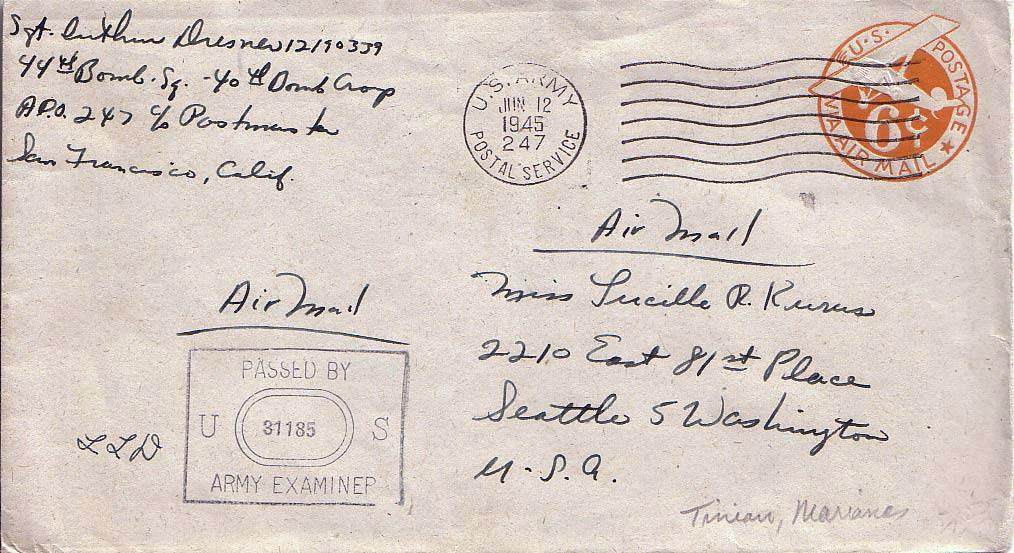 Sgt. Arthur Dresner 12190339
44th Bomb. Sq. - 40th Bomb Group
A.P.O. 247 c/o Postmaster
San Francisco, Calif.
U.S. ARMY
JUN 12
1945
247
POSTAL SERVICE
U.S. POSTAGE
6¢
VIA AIR MAIL
Air Mail
Miss Lucille R. Kurus
2210 East 81st Place
Seattle 5 Washington
U.S.A.
Air Mail
PASSED BY
U 31185 S
ARMY EXAMINER
Tinian, Marianes